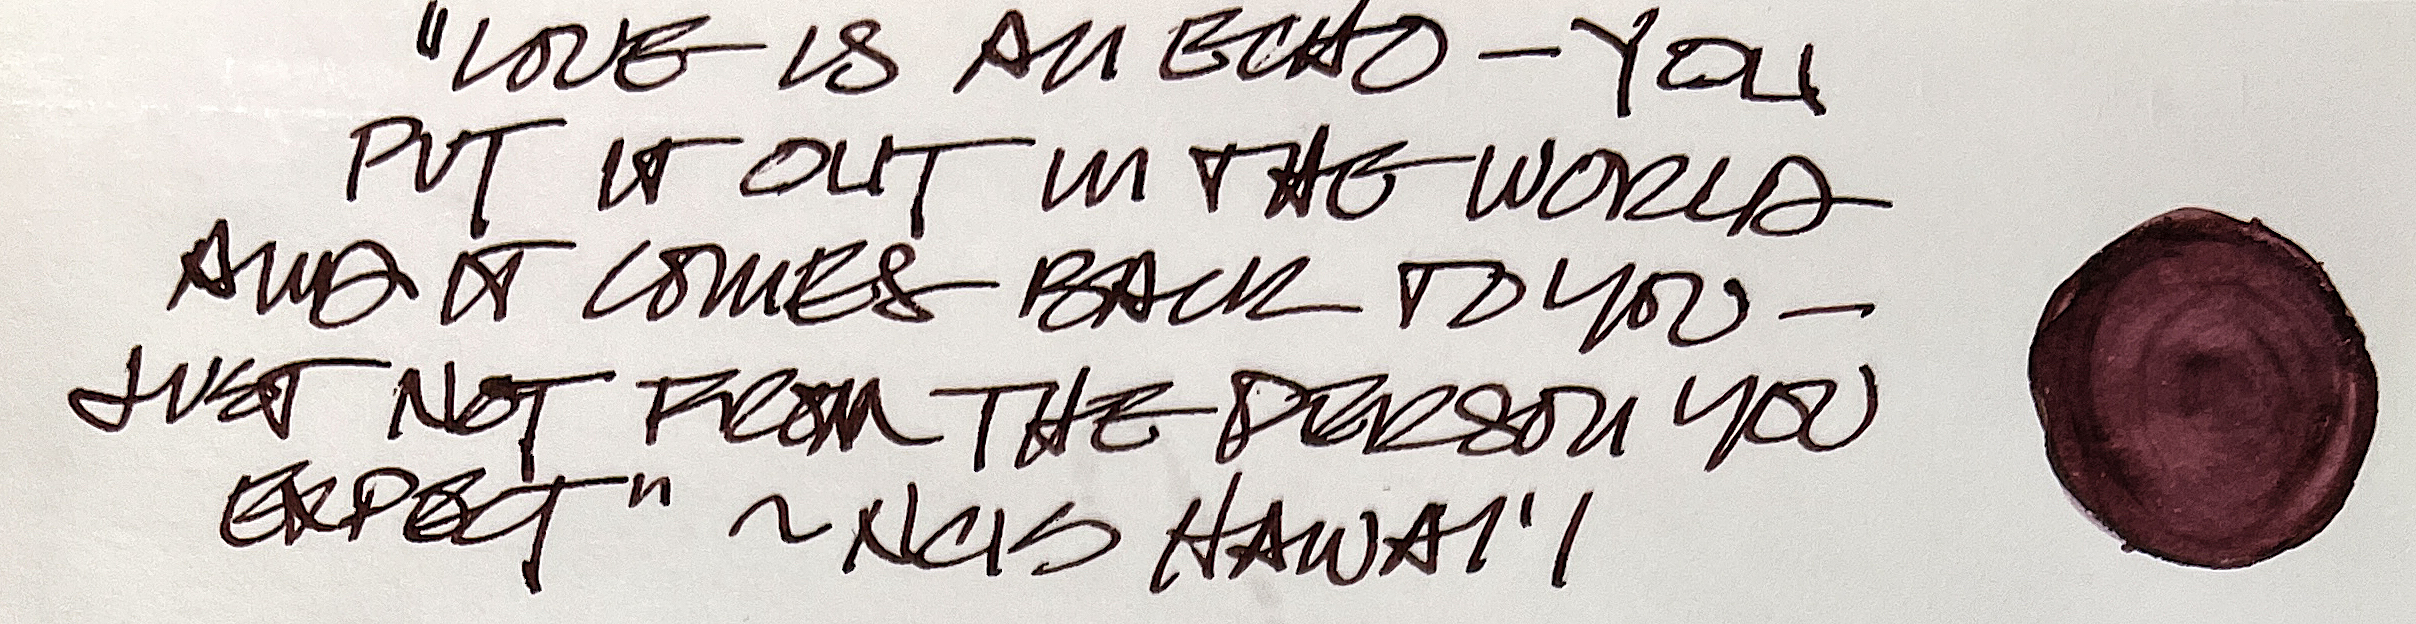 "LOVE IS AN ECHO – YOU
PUT IT OUT IN THE WORLD
AND IT COMES BACK TO YOU –
JUST NOT FROM THE PERSON YOU
EXPECT" ~ NCIS HAWAI'I